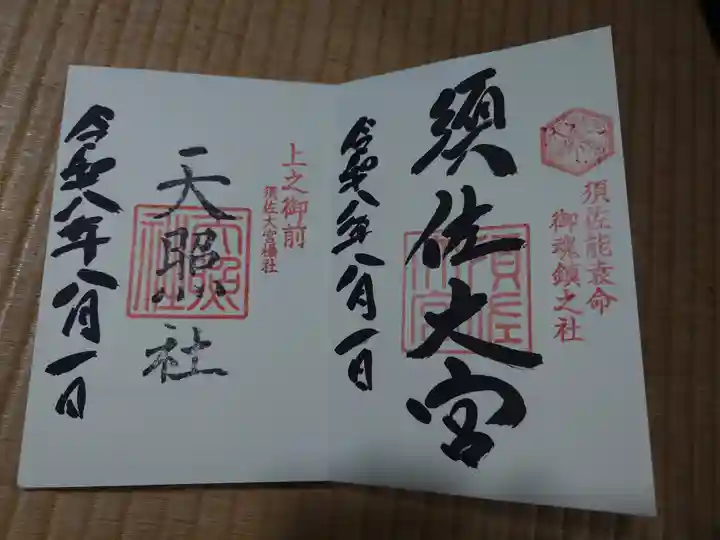 須佐能袁命
御魂鎮之社
須佐大宮
令和八年八月一日
上之御前
須佐大宮攝社
天照社
令和八年八月一日